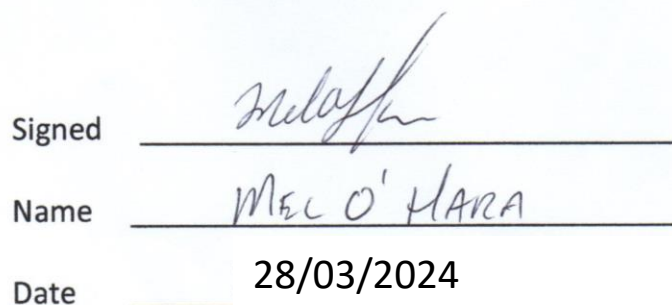 Signed
Name MEL O'HARA
Date 28/03/2024